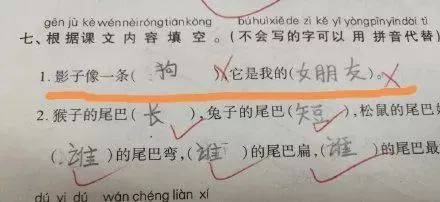 gēn jù kè wén nèi róng tián kòng bú huì xiě de zì kě yǐ yòng pīn yīn dài tì
七、根据课文内容填空。(不会写的字可以用拼音代替)
1. 影子像一条(狗),它是我的(女朋友)。
2. 猴子的尾巴(长),兔子的尾巴(短),松鼠的尾巴
(谁)的尾巴弯,(谁)的尾巴扁,(谁)的尾巴最
dú yi dú wán chéng liàn xí